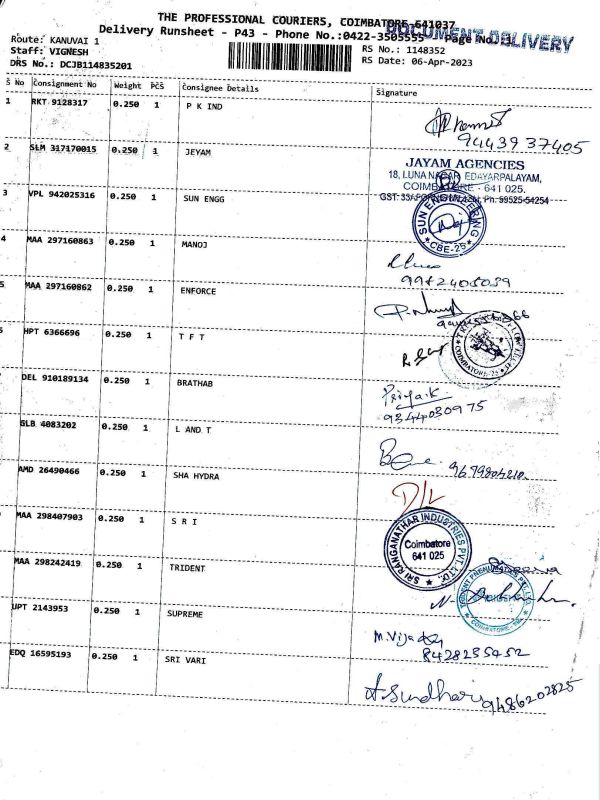 THE PROFESSIONAL COURIERS, COIMBATORE-641037
Delivery Runsheet - P43 - Phone No.:0422-3505555 Page No. 1
DOCUMENT DELIVERY
Route: KANUVAI 1
RS No.: 1148352
Staff: VIGNESH
RS Date: 06-Apr-2023
DRS No.: DCJB114835201
S No Consignment No Weight PCS Consignee Details Signature
1 RKT 9128317 0.250 1 P K IND
9443937405
2 SLM 317170015 0.250 1 JEYAM
JAYAM AGENCIES
18, LUNA NAGAR, EDAYARPALAYAM,
COIMBATORE - 641 025.
3 VPL 942025316 0.250 1 SUN ENGG
SUN ENGINEERING
CBE-25
4 MAA 297160863 0.250 1 MANOJ
5 MAA 297160862 0.250 1 ENFORCE
HPT 6366696 0.250 1 T F T
DEL 910189134 0.250 1 BRATHAB
Priya.k
9344030975
GLB 4083202 0.250 1 L AND T
AMD 26490466 0.250 1 SHA HYDRA
D/L
MAA 298407903 0.250 1 S R I
SRI RANGANATHAR INDUSTRIES PVT. LTD.
Coimbatore
641 025
MAA 298242419 0.250 1 TRIDENT
UPT 2143953 0.250 1 SUPREME
8428235452
EDQ 16595193 0.250 1 SRI VARI
9486202825